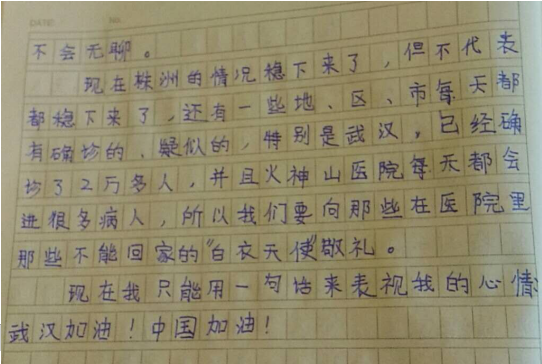 不会无聊。
现在株洲的情况稳下来了，但不代表
都稳下来了，还有一些地、区、市每天都
有确诊的、疑似的，特别是武汉，已经确
诊了2万多人，并且火神山医院每天都会
进很多病人，所以我们要向那些在医院里
那些不能回家的"白衣天使"敬礼。
现在我只能用一句话来表视我的心情：
武汉加油！中国加油！